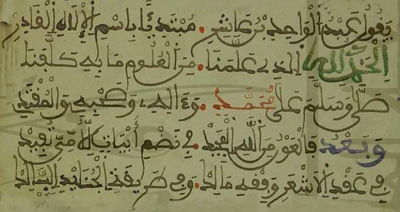 يقول عبد الواحد بن عاشر مبتدئا باسم الإله القادر
الحمد لله الذي علمنا من العلوم ما به كلفنا
صلى وسلم على محمد وءاله وصحبه والمقتد
وبعد فالعون من الله المجيد في نظم أبيات للأمي تفيد
في عقد الأشعري وفقه مالك وفي طريقة الجنيد السالك